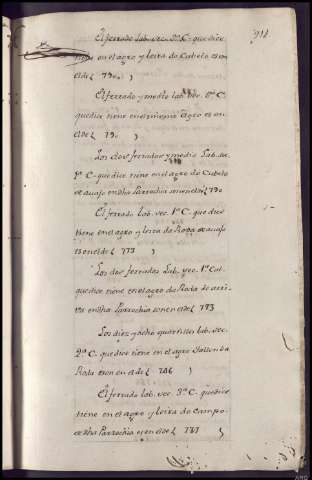 914
El ferrado lab. sec. 3ª C. que dice
tiene en el agro y leira de Cubelo es en
el de ( 790 )
El ferrado y medio lab. sec. 2ª C.
que dice tiene en el mismo agro es en
el de ( 79. )
Los dos ferrados y medio Lab. sec.
1ª C. que dice tiene en el agro de Cubelo
de avajo en dha Parrochia son en el de ( 790
El ferrado lab. sec. 1ª C. que dice
tiene en el agro y leira de Roda de avajo
es en el de ( 773 )
Los dos ferrados Lab. sec. 1ª Cal.
que dice tiene en el agro de Roda de arri-
va en dha Parrochia son en el de ( 773
Los diez y ocho quartillos lab. sec.
2ª C. que dice tiene en el agro
Roda es en el de ( 786 )
El ferrado lab. sec. 3ª C. que dice
tiene en el agro y leira de Campo
de dha Parrochia es en el de ( 787 )